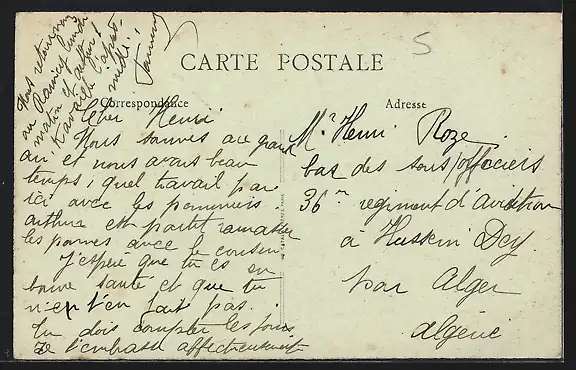 Nous retournons
au Raincy lundi
matin et
travaille l'apat-
midi.
CARTE POSTALE
5
Correspondance
Cher Henri
Nous sommes au grand
air et nous avons beau
temps, quel travail par
ici avec les pommiers.
arthur est partit ramasser
les pomes avec le cousin
J'espère que tu es en
bonne santé et que tu
n'en t'en fait pas.
Tu dois compter les jours
Je t'embrasse affectueusement
Adresse
Mr Henri Roze
bas des sous/officiers
36me regiment d'aviation
à Hussein Dey
par Alger
algérie